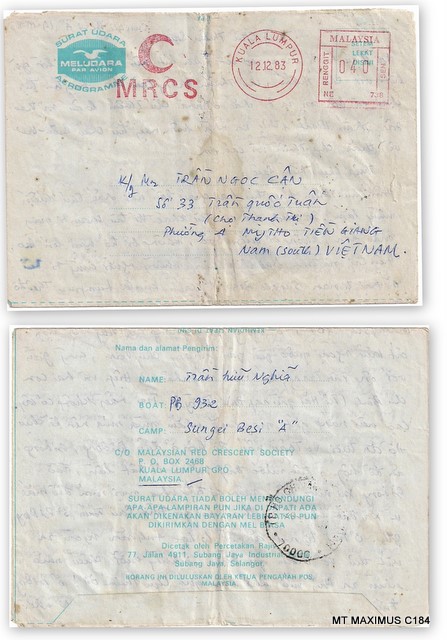 SURAT UDARA
MELUDARA
PAR AVION
AEROGRAMME
MRCS
KUALA LUMPUR
12.12.83
MALAYSIA
RINGGIT
040
SEN
K/g Mr TRẦN NGOC CẨN
Số 33 Trần quốc Tuấn
Phường 4 MYTHO TIỀN GIANG
Nam (South) VIỆTNAM.
Nama dan alamat Pengirim:
NAME: Trần hữu Nghiã
BOAT: PB 932
CAMP: Sungei Besi "A"
C/O MALAYSIAN RED CRESCENT SOCIETY
P. O. BOX 2488
KUALA LUMPUR GPO
MALAYSIA
SURAT UDARA TIADA BOLEH MENGANDUNGI
APA APA LAMPIRAN PUN JIKA DIDAPATI ADA
AKAN DIKENAKAN BAYARAN LEBIH ATAU PUN
DIKIRIMKAN DENGAN MEL BIASA
Dicetak oleh Percetakan
77, Jalan 4911, Subang Jaya Industrial
Subang Jaya, Selangor.
BORANG INI DILULUSKAN OLEH KETUA PENGARAH POS
MALAYSIA
MT MAXIMUS C184